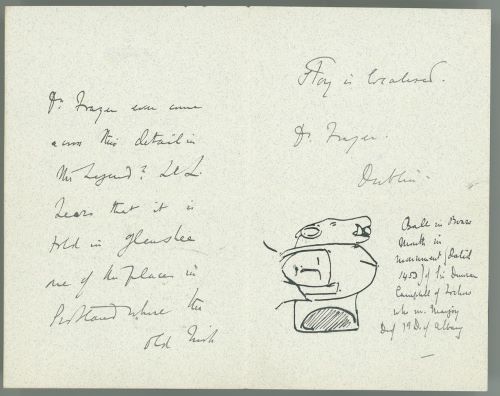 Dr. Frazer ever come
across this detail in
the Legend? Ld L.
hears that it is
told in Glenshee
one of the places in
Scotland where the
old Irish
story is localised.
Dr. Frazer.
Dublin.
Ball in Boars
Mouth in
monument (dated
1453) of Sir Duncan
Campbell of Lochow
who m. Marjory
D. of 1st D. of Albany